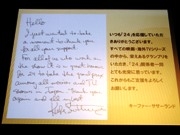 Hello
I just wanted to take
a moment to thank you
for all your support.
For all of us who work on
the show it
for 24 to take the grand prize
among all movies and TV
shows in Japan. Thank you
again and all best
Kiefer Sutherland
いつも「24」を応援していただき
ありがとうございます。
すべての映画・海外TVシリーズ
の中から、栄えあるグランプリを
いただき、「24」関係者一同
とても光栄に思っています。
これからもご支援をよろしく
お願いします。
キーファー・サザーランド